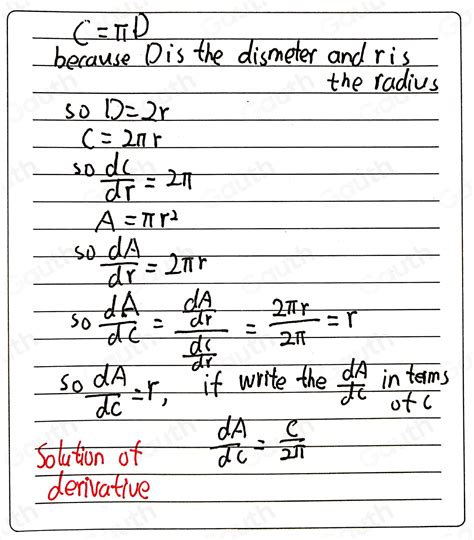 C = πD
because D is the dismeter and r is
the radius
so D = 2r
C = 2πr
so dC/dr = 2π
A = πr²
so dA/dr = 2πr
so dA/dC = (dA/dr)/(dC/dr) = 2πr/2π = r
so dA/dC = r, if write the dA/dC in terms
of C
dA/dC = C/2π
Solution of
derivative